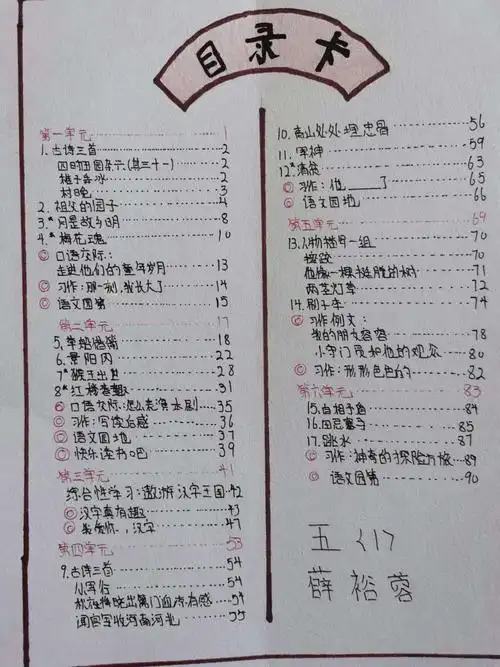 目录卡
第一单元 1
1.古诗三首 2
四时田园杂兴(其三十一) 2
稚子弄冰 2
村晚 3
2.祖父的园子 4
3.*月是故乡明 8
4.*梅花魂 10
◎口语交际:
走进他们的童年岁月 13
◎习作:那一刻,我长大了 14
◎语文园地 15
第二单元 17
5.草船借箭 18
6.景阳冈 22
7*猴王出世 28
8*红楼春趣 31
◎口语交际:怎么表演课本剧 35
◎习作:写读后感 36
◎语文园地 37
◎快乐读书吧 39
第三单元 41
综合性学习:遨游汉字王国 42
◎汉字真有趣 43
◎我爱你,汉字 47
第四单元 53
9.古诗三首 54
从军行 54
秋夜将晓出篱门迎凉有感 54
闻官军收河南河北 55
10.青山处处埋忠骨 56
11.军神 59
12*清贫 63
◎习作:他____了 65
◎语文园地 66
第五单元 69
13.人物描写一组 70
摔跤 70
他像一棵挺脱的树 71
两茎灯草 72
14.刷子李 74
◎习作例文:
我的朋友容容 78
小守门员和他的观众 80
◎习作:形形色色的人 82
第六单元 83
15.自相矛盾 84
16.田忌赛马 85
17.跳水 87
◎习作:神奇的探险之旅 89
◎语文园地 90
五〈1〉
薛裕蓉